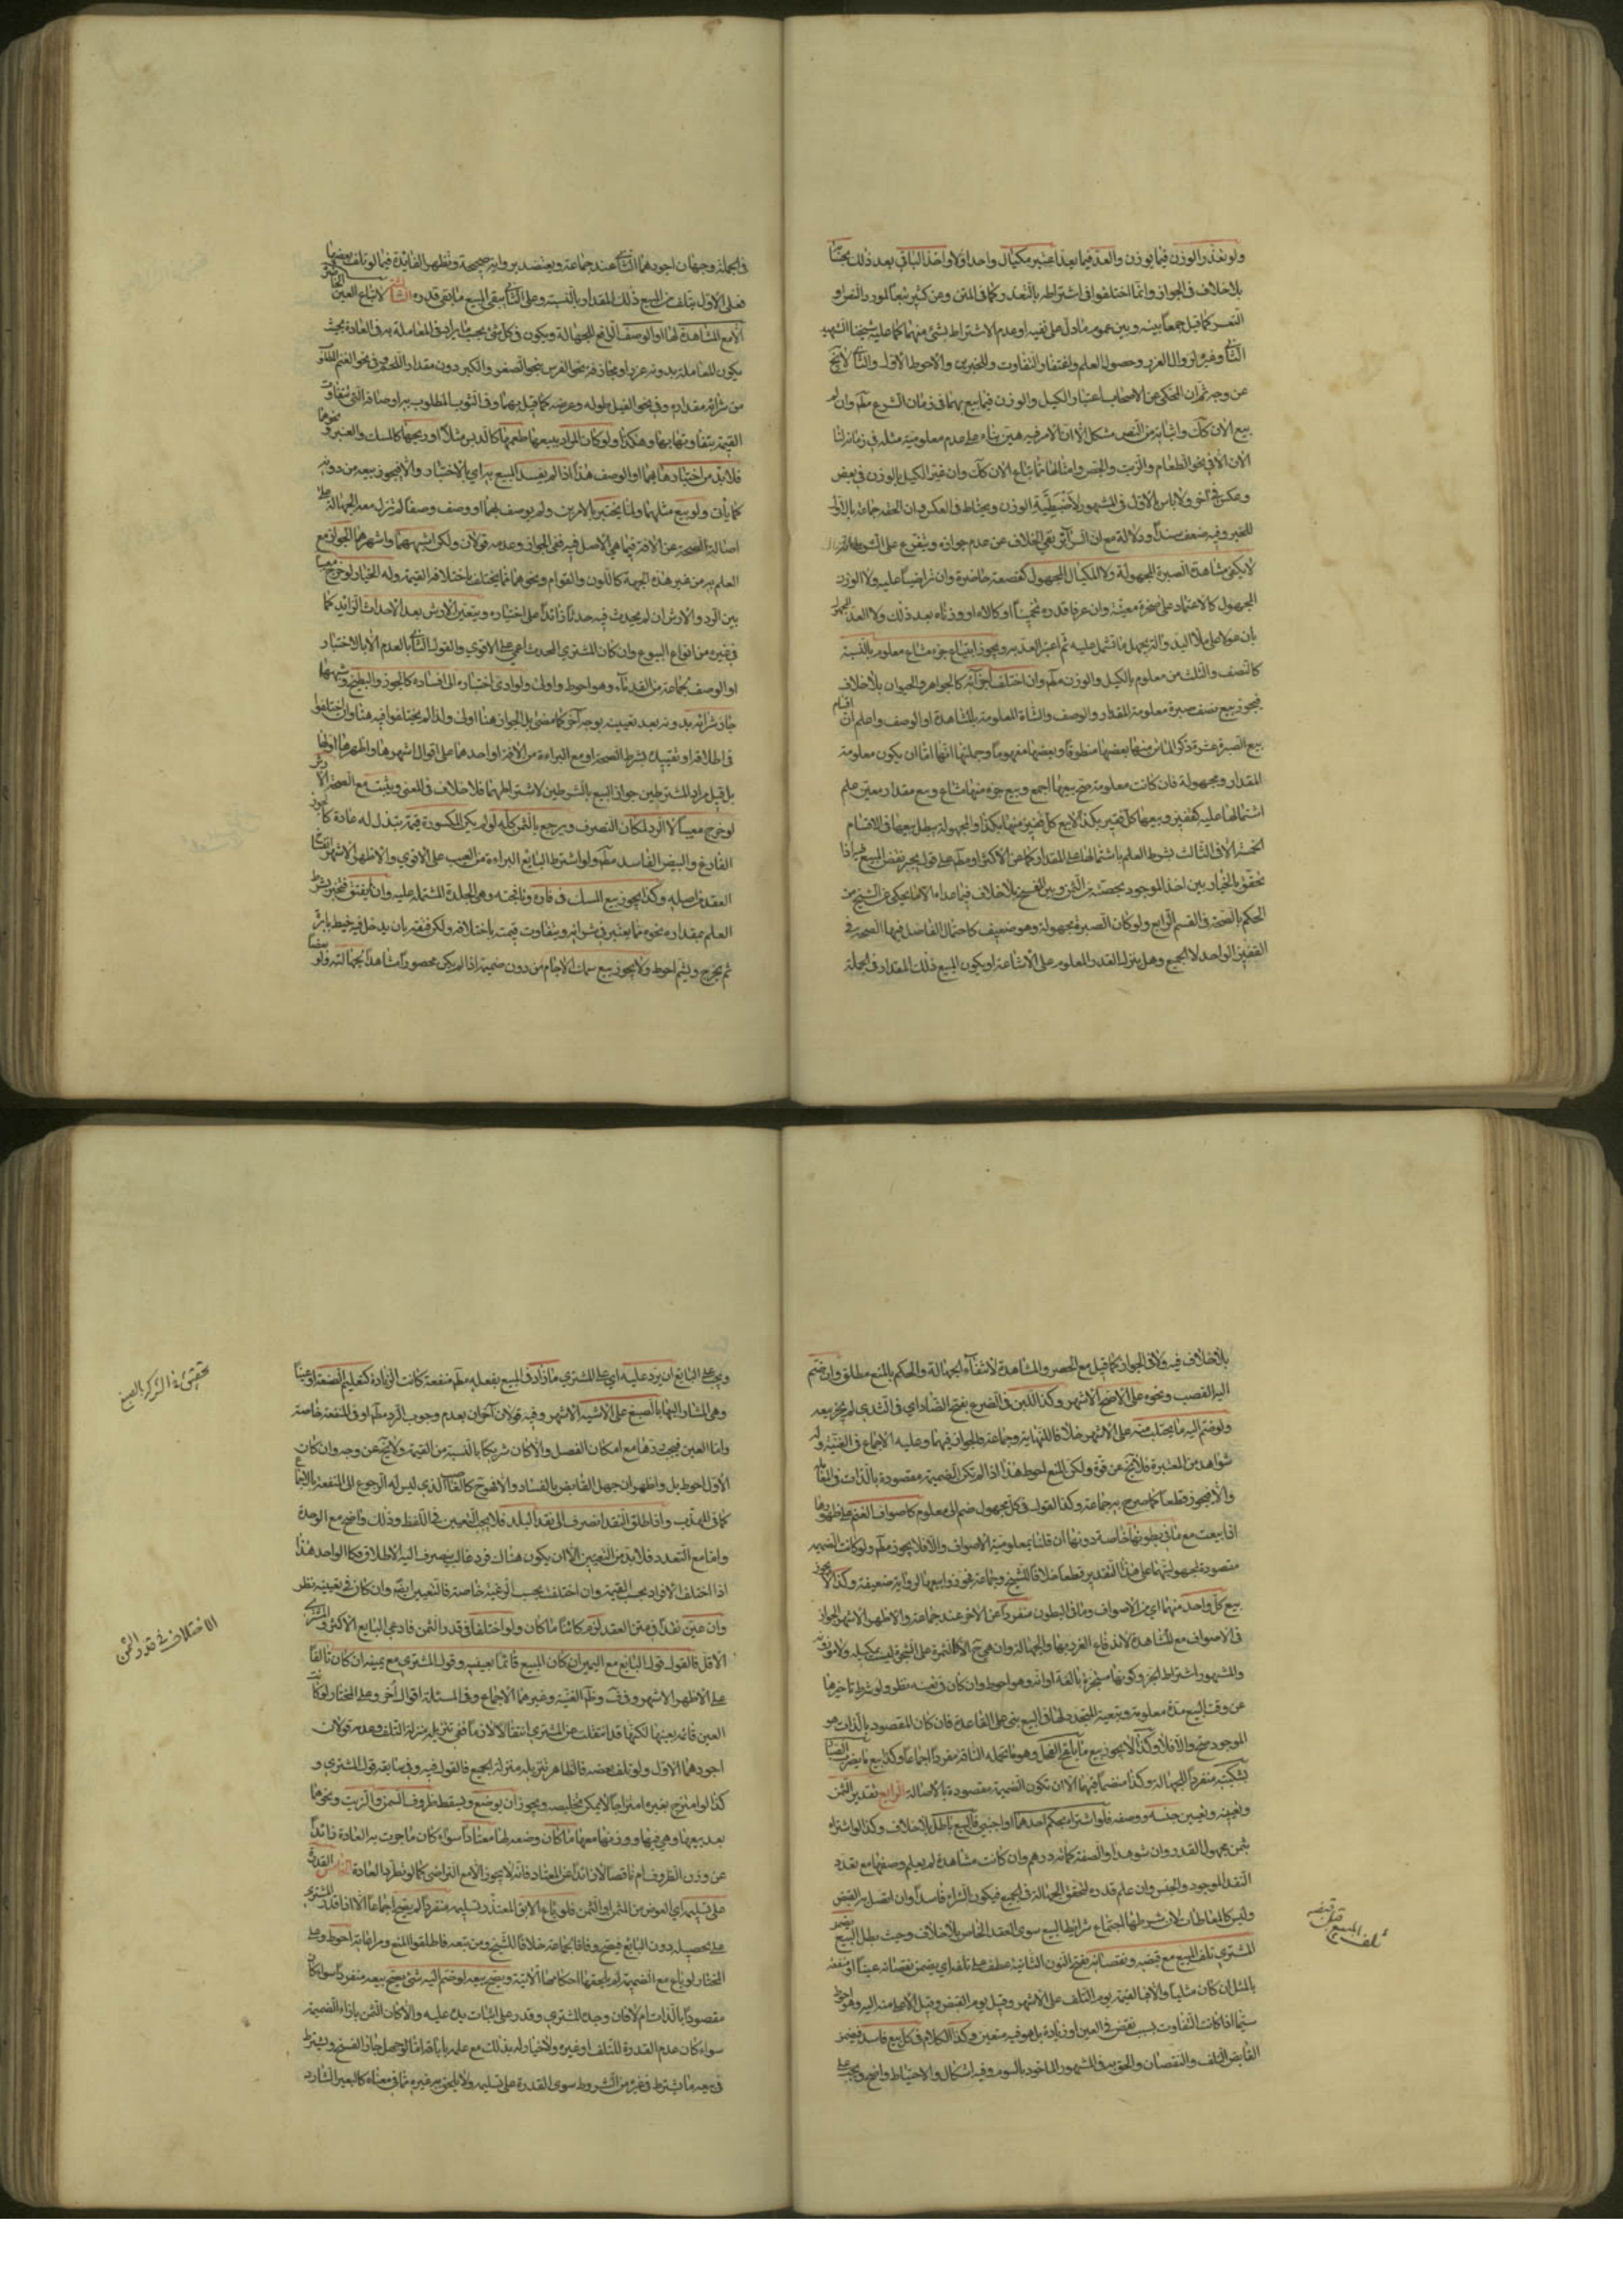 ولو تعذر الوزن فيما يوزن والعد فيما يعد اعتبر مكيال واحد اولا واخذ الباقي بعد ذلك بحسابه
بلا خلاف في الجواز وانما اختلفوا في اشتراطه بالتعذر كما في المتن وعن كثير تبعا لمورد النص او
التعسر كما قيل جمعا بينه وبين عموم ما دل على نفيه او عدم الاشتراط بشئ منهما كما عليه شيخنا الشهيد
الثاني وغيره لزوال الغرر وحصول العلم واغتفار التفاوت وللخبرين والاحوط الاول والثاني لا يخ
عن وجه ثم ان المحكي عن الاصحاب اعتبار الكيل والوزن فيما بيع بهما في زمان الشرع مطم وان لم
يباع الان كك واثباته من النص مشكل الا ان الامر فيه هين بناء على عدم معلومية مثله في زماننا
الان الا في نحو الطعام والزيت والجص وامثالها مما يباع الان كك وان غير الكيل بالوزن في بعض
وعكس في اخر ولا باس بالاول في المشهور لاضبطية الوزن ويحتاط في العكس وان الحقه جماعة بالاول
للخبر وفيه ضعف سندا ودلالة مع ان السرائر نفي الخلاف عن عدم جوازه ويتفرع على الشرط
لا يكفي مشاهدة الصبرة المجهولة ولا المكيال المجهول كقصعة حاضرة وان تراضيا عليه ولا الوزن
المجهول كالاعتماد على صخرة معينة وان عرفا قدره تخمينا او كالاه او وزناه بعد ذلك ولا العد المجهول
بان عولا على ملأ اليد والة يجهل ما تشمل عليه ثم اعتبر العد به ويجوز ابتياع جزء مشاع معلوم بالنسبة
كالنصف والثلث من معلوم بالكيل والوزن مطم وان اختلف اجزائه كالجواهر والحيوان بلا خلاف
فيجوز بيع نصف صبرة معلومة المقدار والوصف والشاة المعلومة بالمشاهدة او الوصف واعلم ان اقسام
بيع الصبرة عشرة ذكر الماتن منها بعضها منطوقا وبعضها مفهوما وجملتها انها اما ان يكون معلومة
المقدار او مجهولة فان كانت معلومة صح بيعها اجمع وبيع جزء منها مشاع وبيع مقدار معين علم
اشتمالها عليه كقفيز وبيعها كل قفيز بكذا لا بيع كل قفيز منها بكذا والمجهولة يبطل بيعها في الاقسام
الخمسة الا في الثالث بشرط العلم باشتمالها على المقدار كما عن الاكثر او مطم على قول يجبر نقص المبيع فيه اذا
تحقق بالخيار بين اخذ الموجود بحصته من الثمن وبين الفسخ بلا خلاف فيما عداه الا ما يحكى عن الشيخ من
الحكم بالصحة في القسم الرابع ولو كان الصبرة مجهولة وهو ضعيف كاحتمال الفاضل فيها الصحة في
القفيز الواحد لا الجميع وهل ينزل القدر المعلوم على الاشاعة او يكون المبيع ذلك المقدار في الجملة
في الجملة وجهان اجودهما الثاني عند جماعة ويعتضد برواية صحيحة وتظهر الفائدة فيما لو تلف بعضها
فعلى الاول يتلف من المبيع ذلك المقدار بالنسبة وعلى الثاني يبقى المبيع ما بقي قدره لا تباع العين الحاضرة
الا مع المشاهدة لها او الوصف الرافع للجهالة ويكون في كل شئ بحسب ما يراد في المعاملة به في العادة بحيث
يكون المعاملة بدونه غررا ومجازفة نحو الفرس بنحو الصغر والكبر دون مقدار اللحم وفي نحو الغنم
من شرائه مقداره وفي نحو الفيل طوله وعرضه كما قيل بهما وفي الثوب المطلوب به اوصافه التي تتفاوت
القيمة بتفاوتها بها وهكذا ولو كان المراد ببيعها طعمها كالدبس مثلا او ريحها كالمسك والعنبر ونحوهما
فلا بد من اختبارها بهما او الوصف هذا اذا لم يفسد المبيع به اي بالاختبار والا فيجوز بيعه من دونه
كما ياتي ولو بيع مثلهما ولما يختبر بالامرين ولم يوصف بهما او وصف وصفا لم تزل معه الجهالة على
اصالة الصحة عن الافة فيما هي الاصل فيه ففي الجواز وعدمه قولان ولكن اشبههما واشهرهما الجواز مع
العلم به من غير هذه الجهة كاللون والقوام ونحوهما مما يختلف باختلافه القيمة وله الخيار لو خرج معيبا
بين الرد والارش ان لم يحدث فيه حدثا زائدا على اختباره ويتعين الارش بعد الاحداث الزائد كما
في غيره من انواع البيوع وان كان المشتري المحدث اعمى على الاقوى والقول الثاني بالعدم الا بالاختبار
او الوصف لجماعة من القدماء وهو احوط واولى ولو ادى اختباره الى افساده كالجوز والبطيخ وشبههما
جاز شرائه بدونه بعد تعيينه بوجه اخر كما مضى بل الجواز هنا اولى ولذا لم يختلفوا فيه هنا وان اختلفوا
في اطلاقه او تقييده بشرط الصحة او مع البراءة من الافة او احدهما على اقوال اشهرها واظهرها اولها
بل قيل مراد المشترطين جواز البيع بالشرطين لا شتراطهما فلا خلاف في المعنى ويثبت مع الصحة الارش
لو خرج معيبا لا الرد لمكان التصرف ويرجع بالثمن كله لو لم يكن لمكسوره قيمة تبذل له عادة كالجوز
الفارغ والبيض الفاسد مطم ولو اشترط البايع البراءة من العيب على الاقوى والاظهر الاشهر انفساخ
العقد من اصله وكذا يجوز بيع المسك في فاره ونافجته وهي الجلدة المشتملة عليه وان لم يفتق فتختبر بشرط
العلم بمقداره نحوه مما يعتبر في شرائه ويتفاوت قيمته باختلافه ولكن فتقه بان يدخل فيه خيط بابرة
ثم يخرج ويشم احوط ولا يجوز بيع سمك الاجام من دون ضميمة اذا لم يكن محصورا مشاهدا لجهالته ولو
بلا خلاف فيه والا في الجواز كما قيل مع الحصر والمشاهدة لانتفاء الجهالة والحكم بالمنع مطلق وان ضم
اليه القصب ونحوه على الاصح الاشهر وكذا اللبن في الضرع بفتح الضاد اي في الثدي لم يجز بيعه
ولو ضم اليه ما يحتلب منه على الاشهر خلافا للنهاية وجماعة فالجواز فيهما وعليه الاجماع في الغنية وله
شواهد من المعتبرة فلا يخ عن قوة ولكن المنع احوط هذا اذا لم تكن الضميمة مقصودة بالذات في البيع
والا فيجوز قطعا كما صرح به جماعة وكذا القول في كل مجهول ضم الى معلوم كاصواف الغنم على ظهورها
اذا بيعت مع ما في بطونها خاصة دونها ان قلنا بمعلومية الاصواف والا فلا يجوز مطم ولو كانت الضميمة
مقصودة لمجهوليتهما على هذا التقدير قطعا خلافا للشيخ وجماعة فجوزوا بيعهما لرواية ضعيفة وكذا لا يجوز
بيع كل واحد منهما اي من الاصواف وما في البطون منفردا عن الاخر عند جماعة والاظهر الاشهر الجواز
في الاصواف مع المشاهدة لاندفاع الغرر بها والجهالة وان هي ح الا كالثمرة على الشجرة ليست بمكيله ولا موزونة
والمشهور اشتراط الجز وكونها مستجزة بالغة اوانه وهو احوط وان كان في تعينه نظر ولو شرط تاخيرها
عن وقت البيع مدة معلومة وتبعية المتجدد لها في البيع بني على القاعدة فان كان المقصود بالذات هو
الموجود صح والا فلا وكذا لا يجوز بيع ما يلقح الفحل وهو ما تحمله الناقة مفردا اجماعا وكذا بيع ما يضرب الصياد
بشبكته منفردا للجهالة وكذا منضما فيهما الا ان تكون الضميمة مقصودة بالاصالة الرابع تقدير الثمن
وتعيينه وتعيين جنسه ووصفه فلو اشتراه بحكم احدهما او اجنبي فالبيع باطل بلا خلاف وكذا لو اشتراه
بثمن مجهول القدر وان شوهد او الصفة كمائة درهم وان كانت مشاهدة لم يعلم وصفها مع تعدد
النقد الموجود والجنس وان علم قدره لتحقق الجهالة في الجميع فيكون الشراء فاسدا وان اتصل به القبض
وليس كالمعاطاة لان شرطها اجتماع شرائط البيع سوى العقد الخاص بلا خلاف وحيث بطل البيع يضمن
المشتري تلف المبيع مع قبضه ونقصانه بفتح النون الثانية عطف على تلف اي يضمن نقصانه عينا او منفعة
بالمثل ان كان مثليا والا فبالقيمة يوم التلف على الاشهر وقيل يوم القبض وقيل الاعلى منه اليه وهو احوط
سيما اذا كان التفاوت بسبب نقص في العين او زيادة بل هو فيه متعين وكذا الكلام في كل بيع فاسد فيضمن
القابض التلف والنقصان والحق به في المشهور الماخوذ بالسوم وفيه اشكال والاحتياط واضح ويجب على
تلف المبيع قبل قبضه
ويجب على البايع ان يرد عليه اي على المشتري ما زاد في المبيع بفعله مطم منفعة كانت الزيادة كتعليم الصنعة او عينا
وهي المشار اليها بالصبغ على الاشبه الاشهر وفيه قولان آخران بعدم وجوب الرد مطم او في المنفعة خاصة
واما العين فيجب ردها مع امكان الفصل والا كان شريكا بالنسبة من القيمة ولا يخ عن وجه وان كان
الاول احوط بل واظهر ان جهل القابض بالفساد والا فيتوجه كالغاصب الذي ليس له الرجوع الى المنفعة بالاجماع
كما في المهذب واذا اطلق النقد انصرف الى نقد البلد فلا يجب التعيين في اللفظ وذلك واضح مع الوحدة
واما مع التعدد فلا بد من التعيين الا ان يكون هناك فرد غالب ينصرف اليه الاطلاق فكالواحد هذا
اذا اختلف الافراد بحسب القيمة وان اختلف بحسب الرغبة خاصة فالتعيين ايضا وان كان في تعيينه نظر
وان عين نقدا في متن العقد لزم كائنا ما كان ولو اختلفا في قدر الثمن فادعى البايع الاكثر والمشتري
الاقل فالقول قول البايع مع اليمين ان كان المبيع قائما بعينه وقول المشتري مع يمينه ان كان تالفا
على الاظهر الاشهر وفي ف وظ الغنية وغيرهما الاجماع وفي المسئلة اقوال أخر وعلى المختار لو كانت
العين قائمة بعينها لكنها قد انتقلت عن المشتري انتقالا لازما ففي تنزيله منزلة التلف وعدمه قولان
اجودهما الاول ولو تلف بعضه فالظاهر تنزيله منزلة الجميع فالقول فيه وفيما بقه قول المشتري و
كذا لو امتزج بغيره امتزاجا لا يمكن تخليصه ويجوز ان يوضع ويسقط ظروف السمن والزيت ونحوهما
بعد بيعها وهي فيها ووزنها معها ما كان وضعه لها معتادا سواء كان ما جرت به العادة زائدا
عن وزن الظروف ام ناقصا لا زائدا عن المعتاد فانه لا يجوز الا مع التراضي كما لو تطرد العادة الخامس القدرة
على تسليمه اي العوض من المثمن او الثمن فلو باع الابق المتعذر تسليمه منفردا لم يصح اجماعا الا اذا قدر المشتري
على تحصيله دون البايع فيصح وفاقا لجماعة خلافا للشيخ ومن تبعه فاطلقوا المنع ومراعاته احوط وعلى
المختار لو باع مع الضميمة لم يلحقها احكامها الاتية ويصح بيعه لو ضم اليه شئ يصح بيعه منفردا سواء كان
مقصودا بالذات ام لا فان وجده المشتري وقدر على اثبات يده عليه والا كان الثمن بازاء الضميمة
سواء كان عدم القدرة للتلف او غيره ولا خيار له بذلك مع علمه باباقه اما لو جهل جاز الفسخ ويشترط
في بيعه ما يشترط في غيره من الشروط سوى القدرة على تسليمه ولا يلحق به غيره مما في معناه كالبعير الشارد
الاختلاف في قدر الثمن